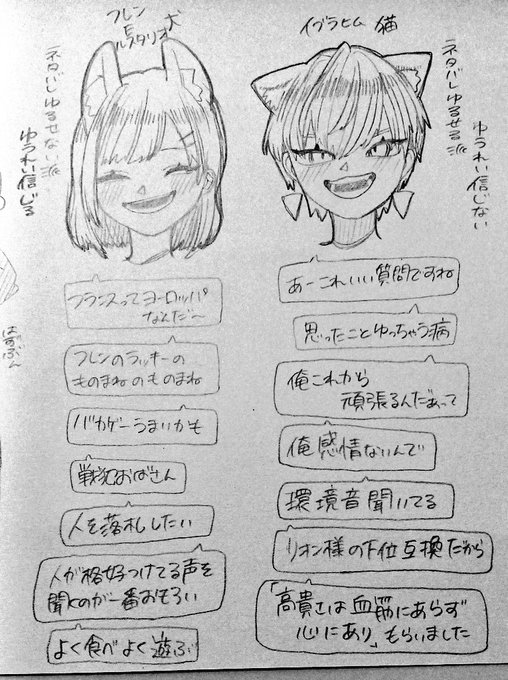 フレン
E
ルスタリオ
犬
ネタバレゆるせない派
ゆうれい信じる
フランスってヨーロッパ
なんだ〜
フレンのラッキーの
ものまねのものまね
バカゲーうまいかも
戦犯おばさん
人を落札したい
人が格好つけてる声を
聞くのが一番おもろい
よく食べよく遊ぶ
イブラヒム 猫
ネタバレゆるせる派
ゆうれい信じない
あーこれいい質問ですね
思ったことゆっちゃう病
俺これから
頑張るんだぁって
俺感情ないんで
環境音聞いてる
リオン様の下位互換だから
「高貴さは血筋にあらず
心にあり」もらいました